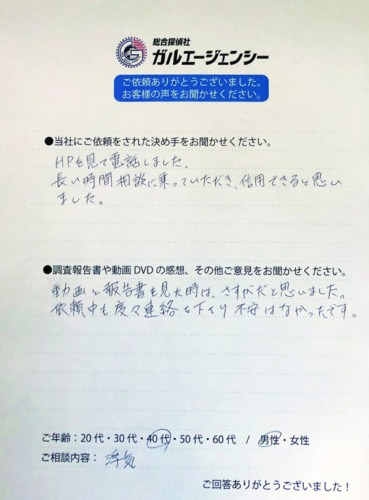 総合探偵社
ガルエージェンシー
ご依頼ありがとうございました。
お客様の声をお聞かせください。
●当社にご依頼をされた決め手をお聞かせください。
HPを見て電話しました。
長い時間相談に乗っていただき、信用できると思い
ました。
●調査報告書や動画DVDの感想、その他ご意見をお聞かせください。
動画と報告書を見た時は、さすがだと思いました。
依頼中も度々連絡を下さり不安はなかったです。
ご年齢：20代・30代・40代・50代・60代 / 男性・女性
ご相談内容： 浮気
ご回答ありがとうございました！